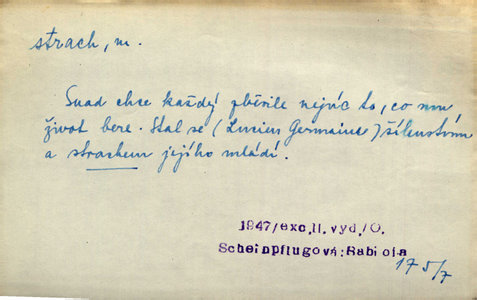 strach, m.
Snad chce každý zběsile nejvíc to, co mu
život bere. Stal se (Lucien Germaine) šílenstvím
a strachem jejího mládí.
1947/exc.II.vyd./O.
Scheinpflugová: Babiola
175/7